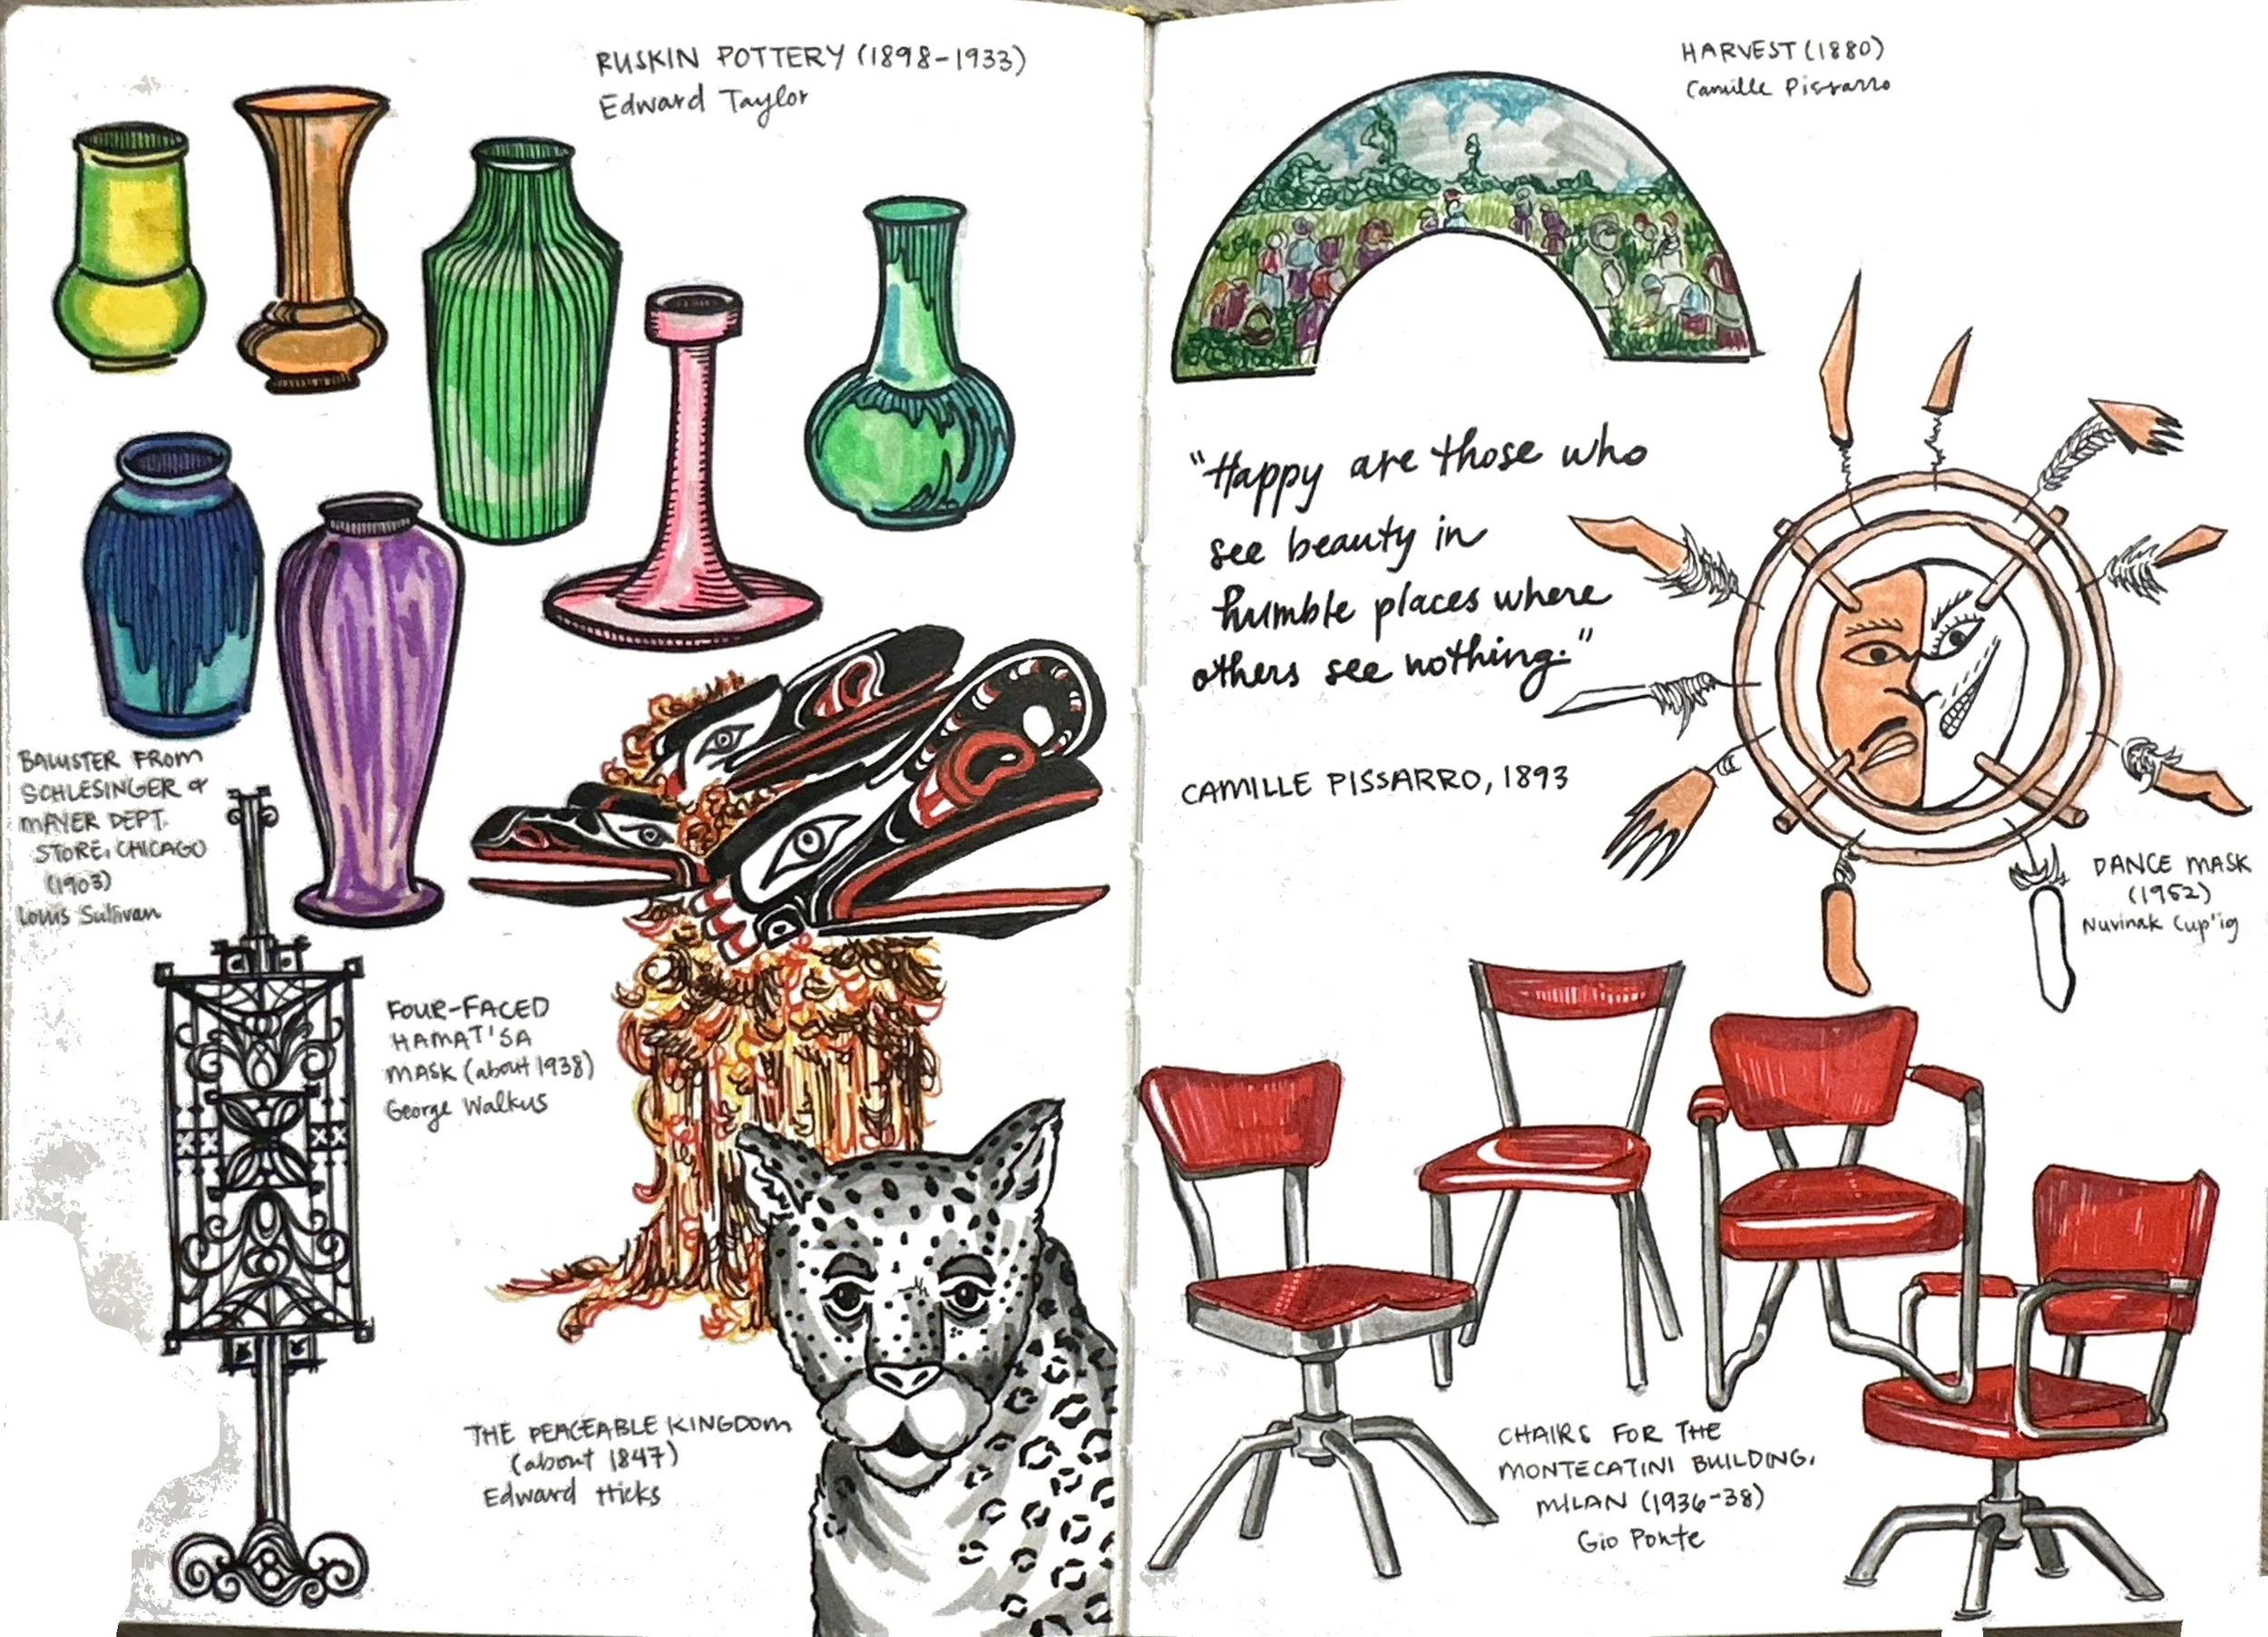 RUSKIN POTTERY (1898-1933)
Edward Taylor
BALUSTER FROM
SCHLESINGER &
MAYER DEPT.
STORE, CHICAGO
(1903)
Louis Sullivan
FOUR-FACED
HAMAT'SA
MASK (about 1938)
George Walkus
THE PEACEABLE KINGDOM
(about 1847)
Edward Hicks
HARVEST (1880)
Camille Pissarro
"Happy are those who
see beauty in
humble places where
others see nothing."
CAMILLE PISSARRO, 1893
DANCE MASK
(1952)
Nuvinak Cup'ig
CHAIRS FOR THE
MONTECATINI BUILDING,
MILAN (1936-38)
Gio Ponte